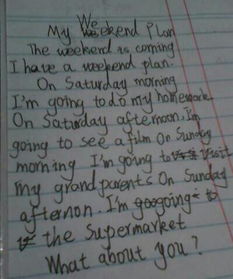 My Weekend Plan
The weekend is coming
I have a weekend plan.
On Saturday morning
I'm going to do my homework
On Saturday afternoon. I'm
going to see a film On Sunday
morning I'm going to visit
my grandparents On Sunday
afternon. I'm going to
the Supermarket
What about you?